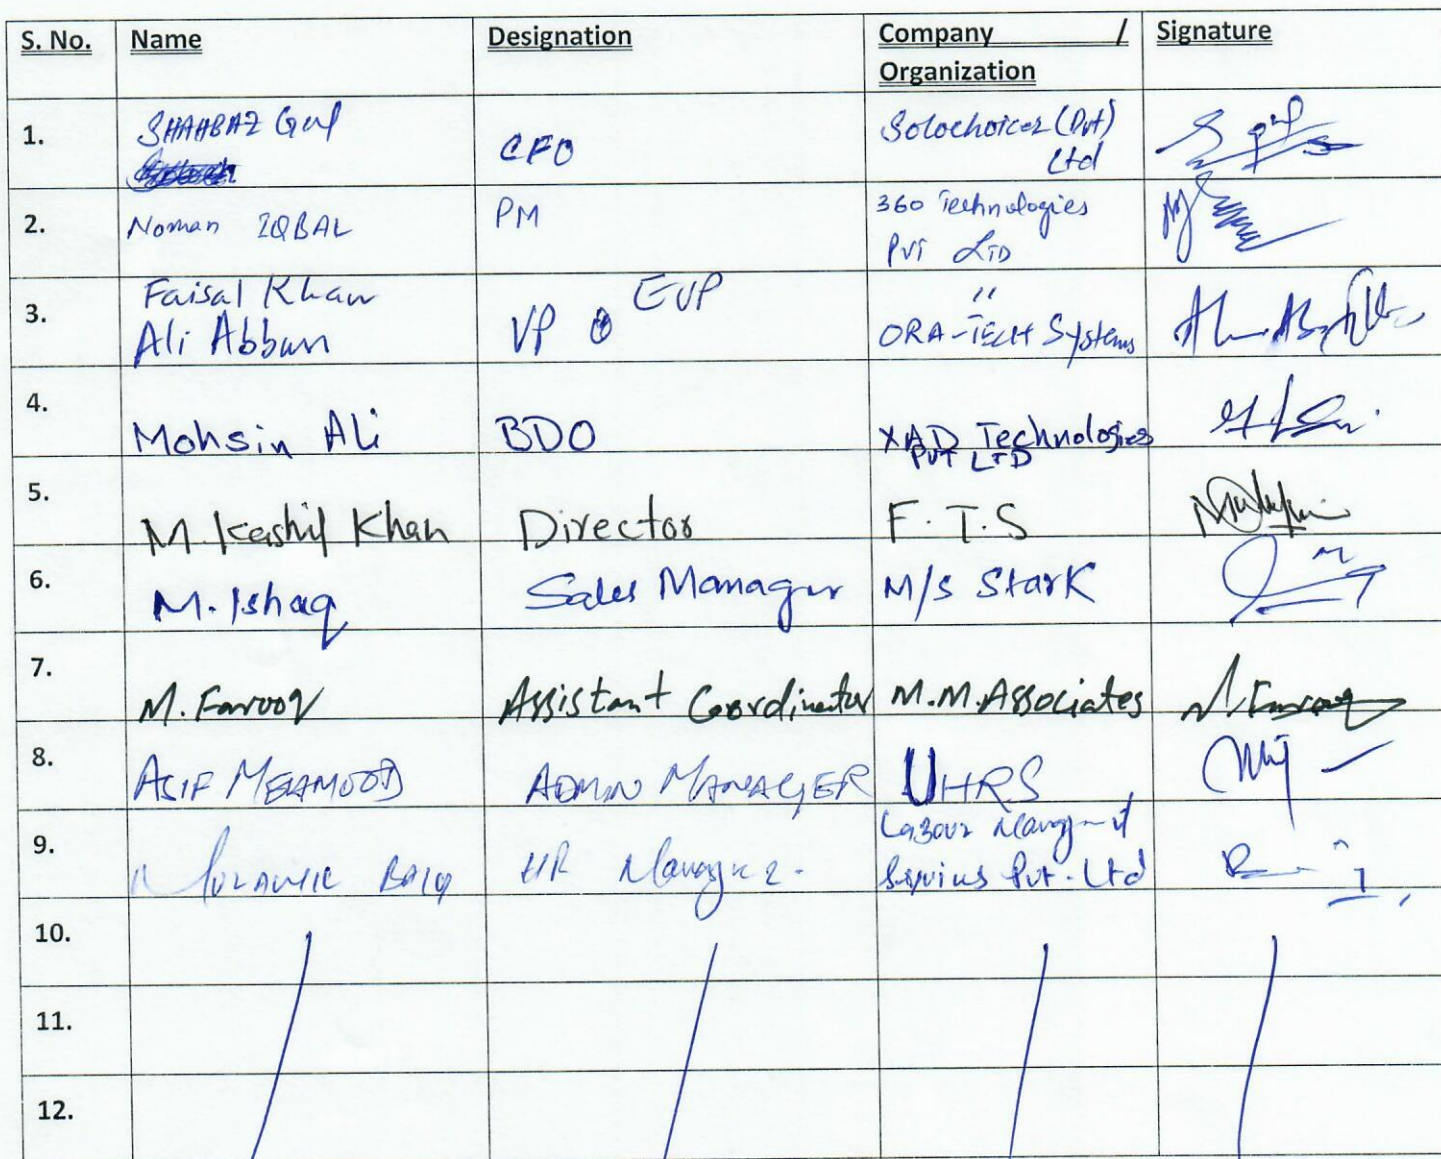 S. No. Name Designation Company / Signature
Organization
1. SHAHBAZ Gul CFO Solochoicez (Pvt)
Ltd
2. Noman IQBAL PM 360 Technologies
Pvt LTD
3. Faisal Khan EVP "
Ali Abban VP ORA-TECH Systems
4. Mohsin Ali BDO XAD Technologies
PVT LTD
5. M. Kashif Khan Director F.T.S
6. M. Ishaq Sales Manager M/S Stark
7. M. Farooq Assistant Coordinator M.M.Associates M. Farooq
8. ASIF MEHMOOD ADMIN MANAGER UHRS
9. HR Manager. Labour Managment
Servius Pvt. Ltd
10.
11.
12.